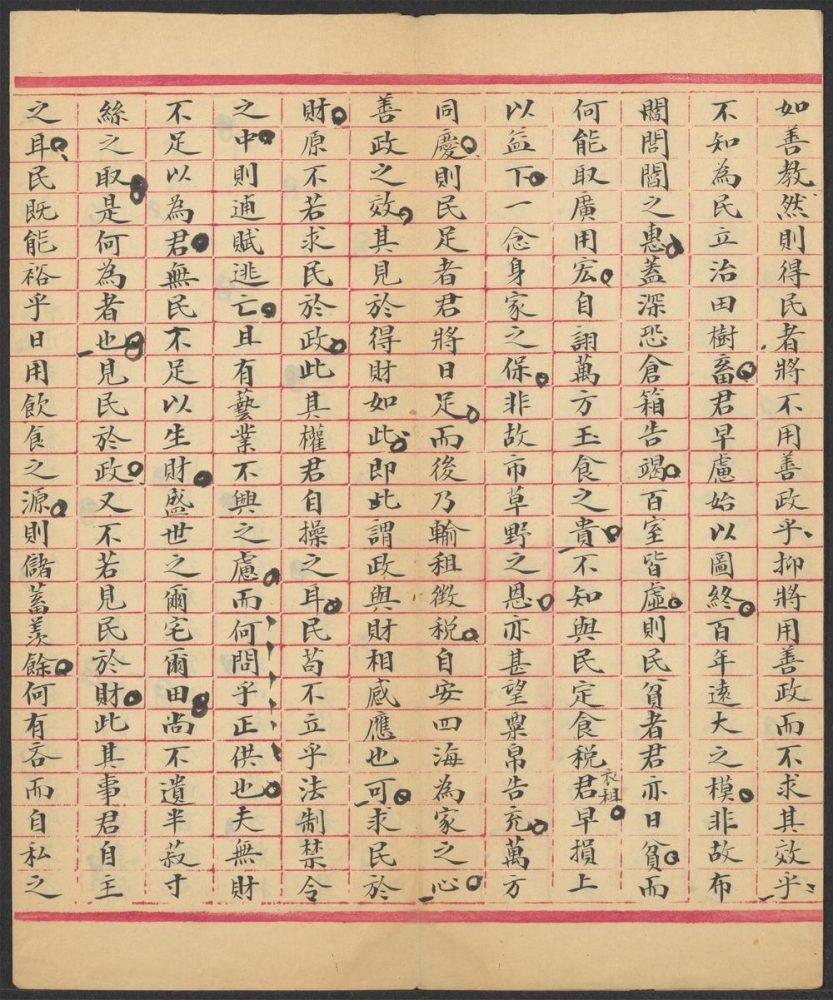 如善教然則得民者將不用善政乎抑將用善政而不求其效乎
不知為民立治田樹畜君早慮始以圖終百年遠大之模非故布
閭閻之惠蓋深恐倉箱告竭百室皆虛則民貧者君亦日貧而
何能取廣用宏自詡萬方玉食之貴不知與民定食税衣租君早損上
以益下一念身家之保非故市草野之恩亦甚望粟帛告充萬方
同慶則民足者君將日足而後乃輸租徵税自安四海為家之心
善政之效其見於得財如此即此謂政與財相感應也可求民於
財原不若求民於政此其權君自操之耳民苟不立乎法制禁令
之中則逋賦逃亡且有藝業不興之慮而何問乎正供也夫無財
不足以為君無民不足以生財盛世之爾宅爾田尚不遺半菽寸
絲之取是何為者也見民於政又不若見民於財此其事君自主
之耳民既能裕乎日用飲食之源則儲蓄羨餘何有吝而自私之